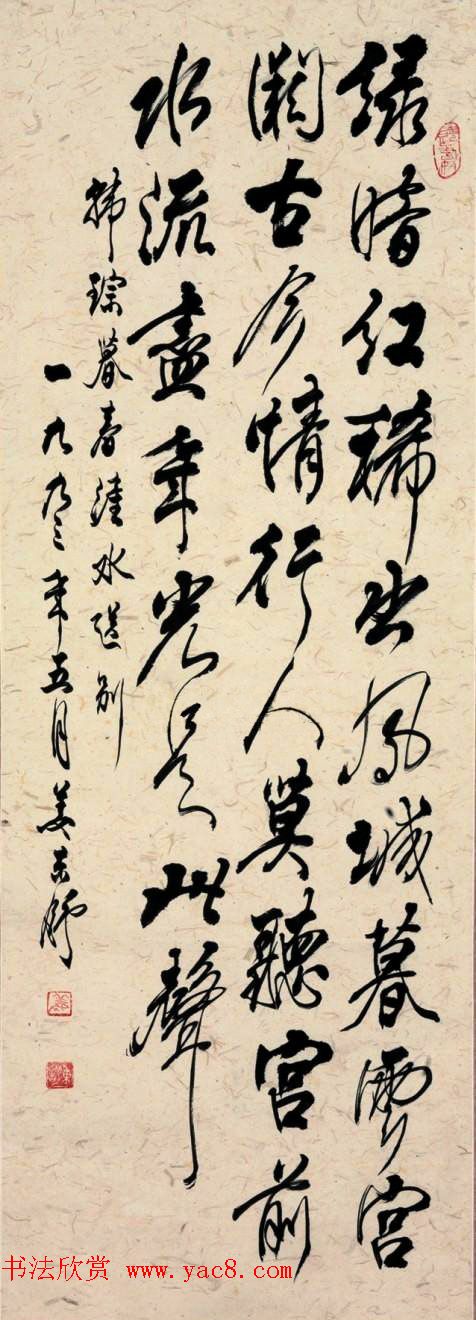 緑暗红稀出凤城暮雲宫
闕古今情行人莫聽宫前
水流盡年光是此聲
韩琮暮春滻水送别
一九九三年五月姜东舒
书法欣赏 www.yac8.com